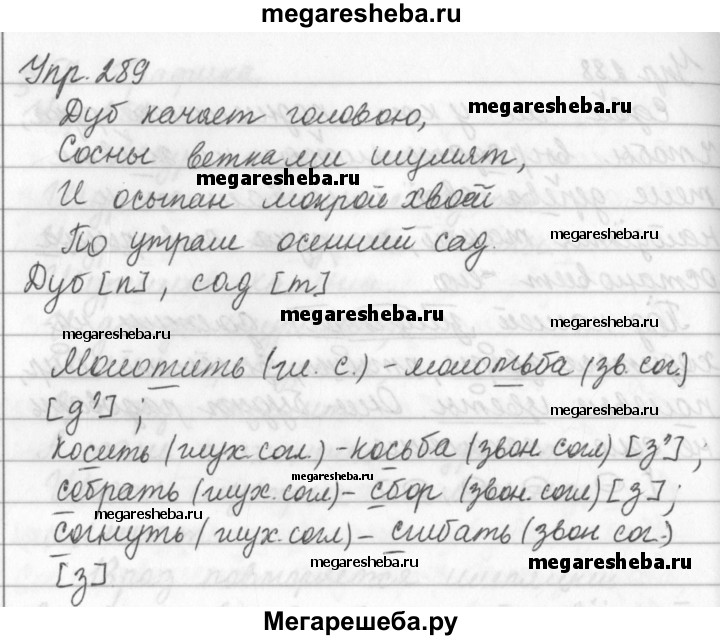 megaresheba.ru
Упр. 289
Дуб качает головою,
megaresheba.ru
Сосны ветками шумят,
megaresheba.ru
И осыпан мокрой хвоей
megaresheba.ru
По утрам осенний сад.
megaresheba.ru
Дуб [п], сад [т]
megaresheba.ru
megaresheba.ru
megaresheba.ru
Молотить (гл. с.) - молотьба (зв. сог.)
[д'];
megaresheba.ru
косить (глух. согл.) - косьба (звон. согл) [з'];
megaresheba.ru
собрать (глух. согл) - сбор (звон. согл) [з];
megaresheba.ru
согнуть (глух. согл) - сгибать (звон сог.)
[з]
megaresheba.ru
megaresheba.ru
Мегарешеба.ру